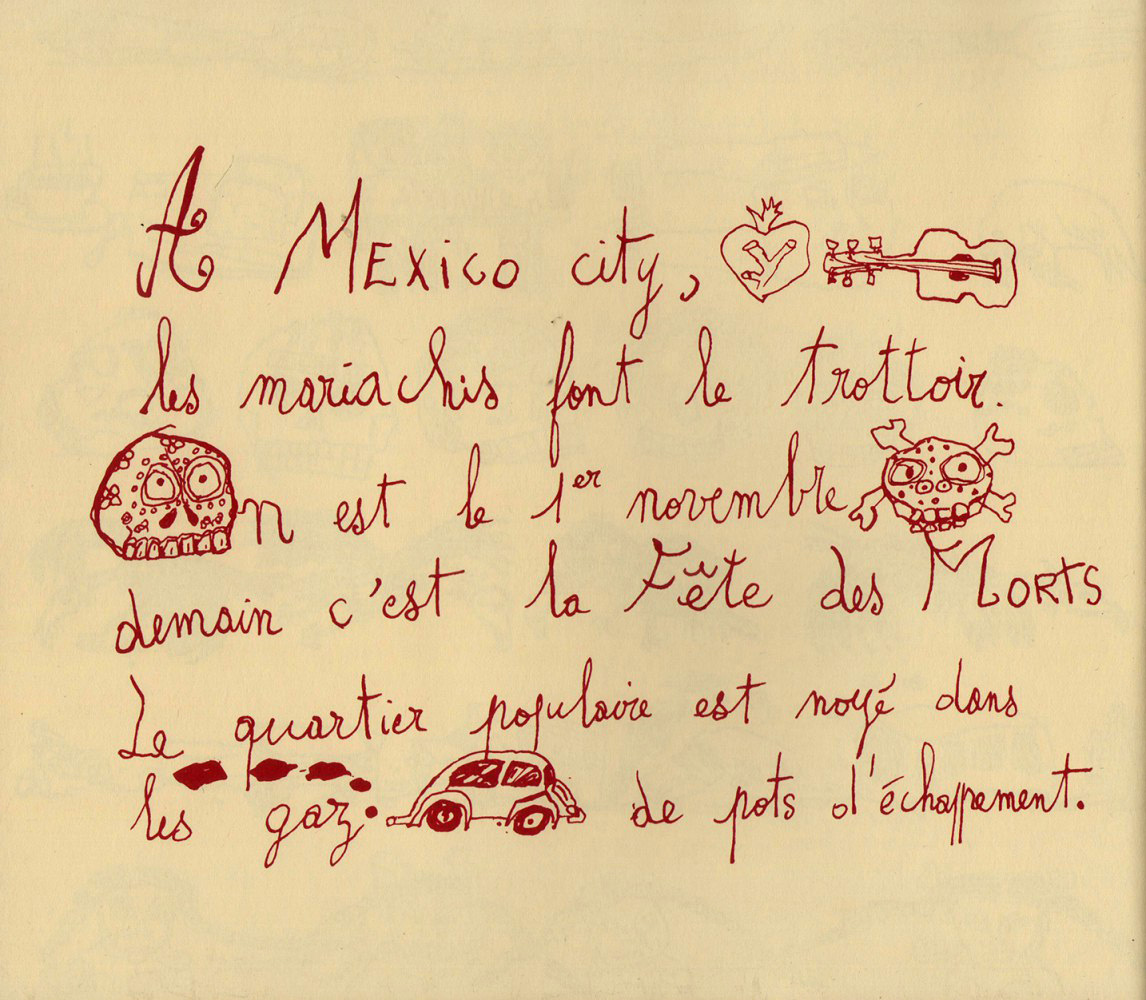 A Mexico city,
les mariachis font le trottoir.
On est le 1er novembre,
demain c'est la Fête des Morts
Le quartier populaire est noyé dans
les gaz de pots d'échappement.